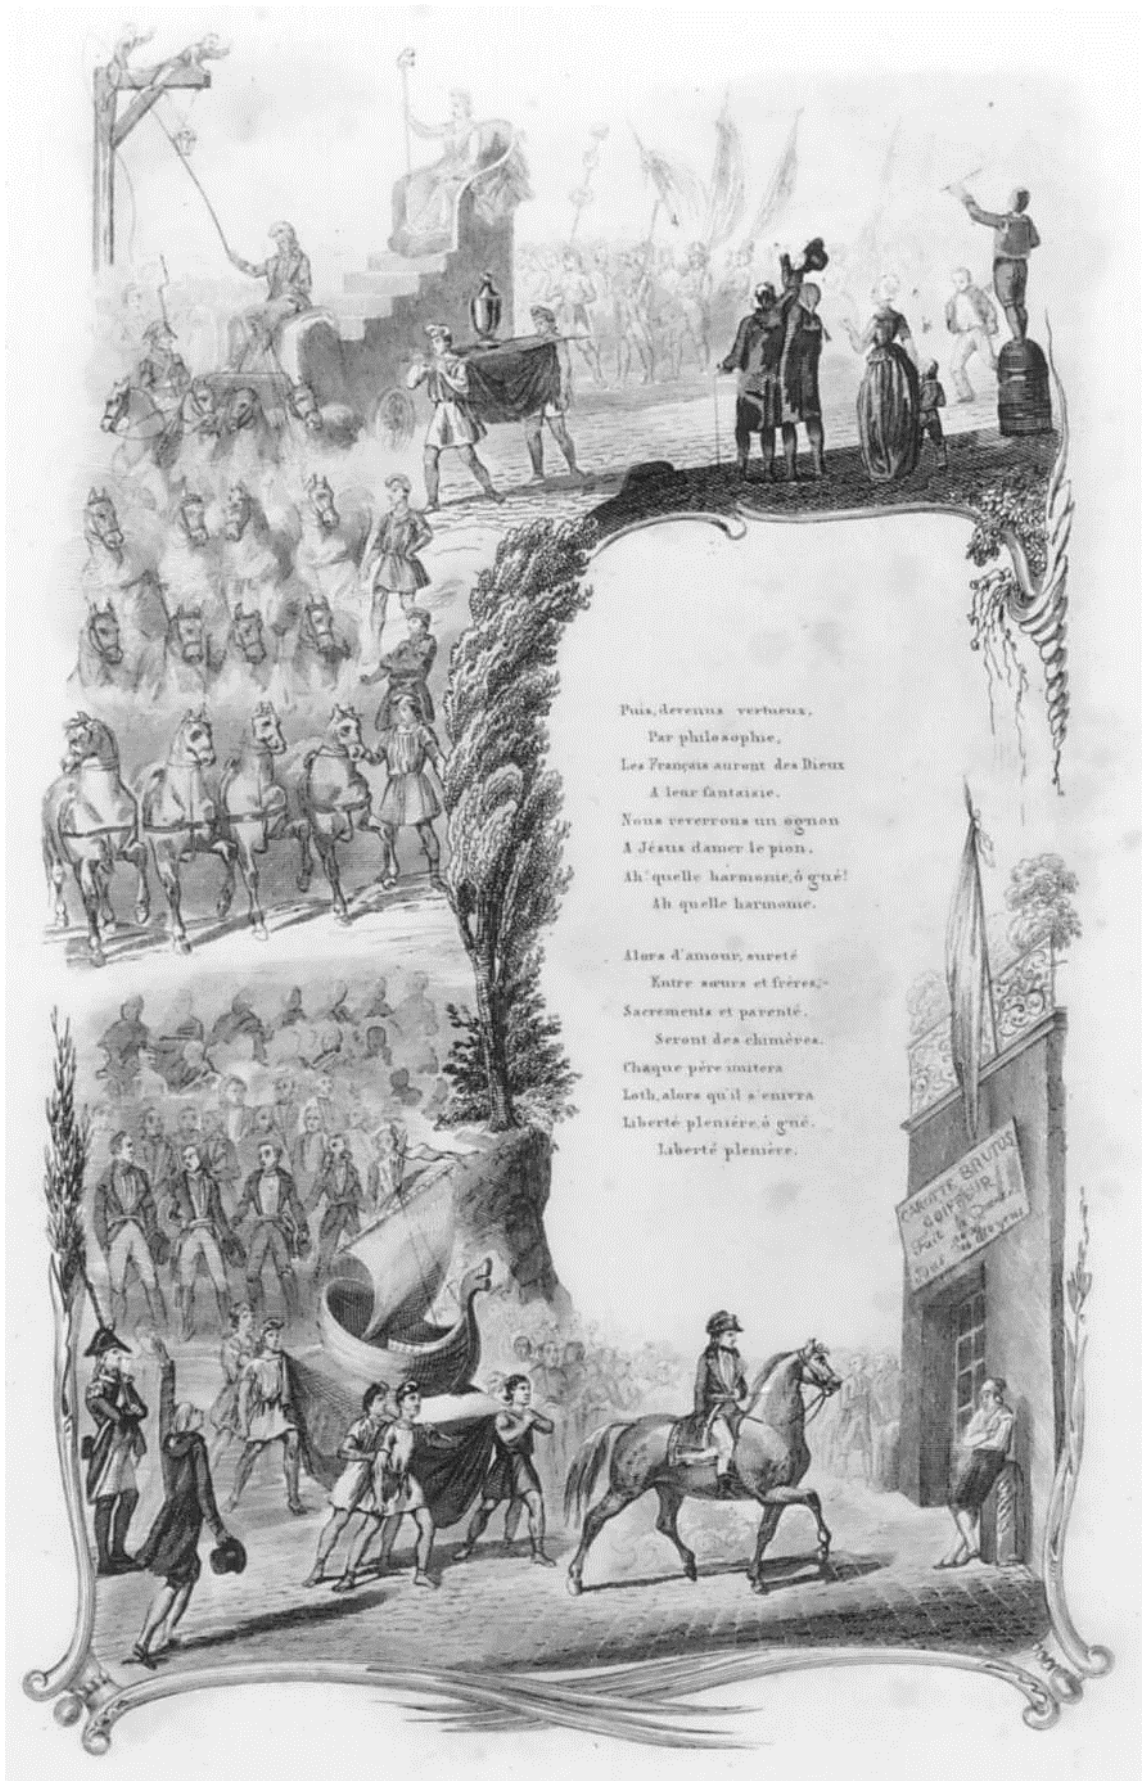 Puis, devenus vertueux,
Par philosophie,
Les Français auront des Dieux
A leur fantaisie.
Nous reverrons un ognon
A Jésus damer le pion.
Ah! quelle harmonie, ô gué!
Ah quelle harmonie.
Alors d'amour, sureté
Entre sœurs et frères,
Sacrements et parenté,
Seront des chimères.
Chaque père imitera
Loth, alors qu'il s'enivra
Liberté plenière, ô gué.
Liberté plenière.
CAROTTE BRUTUS
COIFFEUR
Fait la Queue
aux
Citoyens